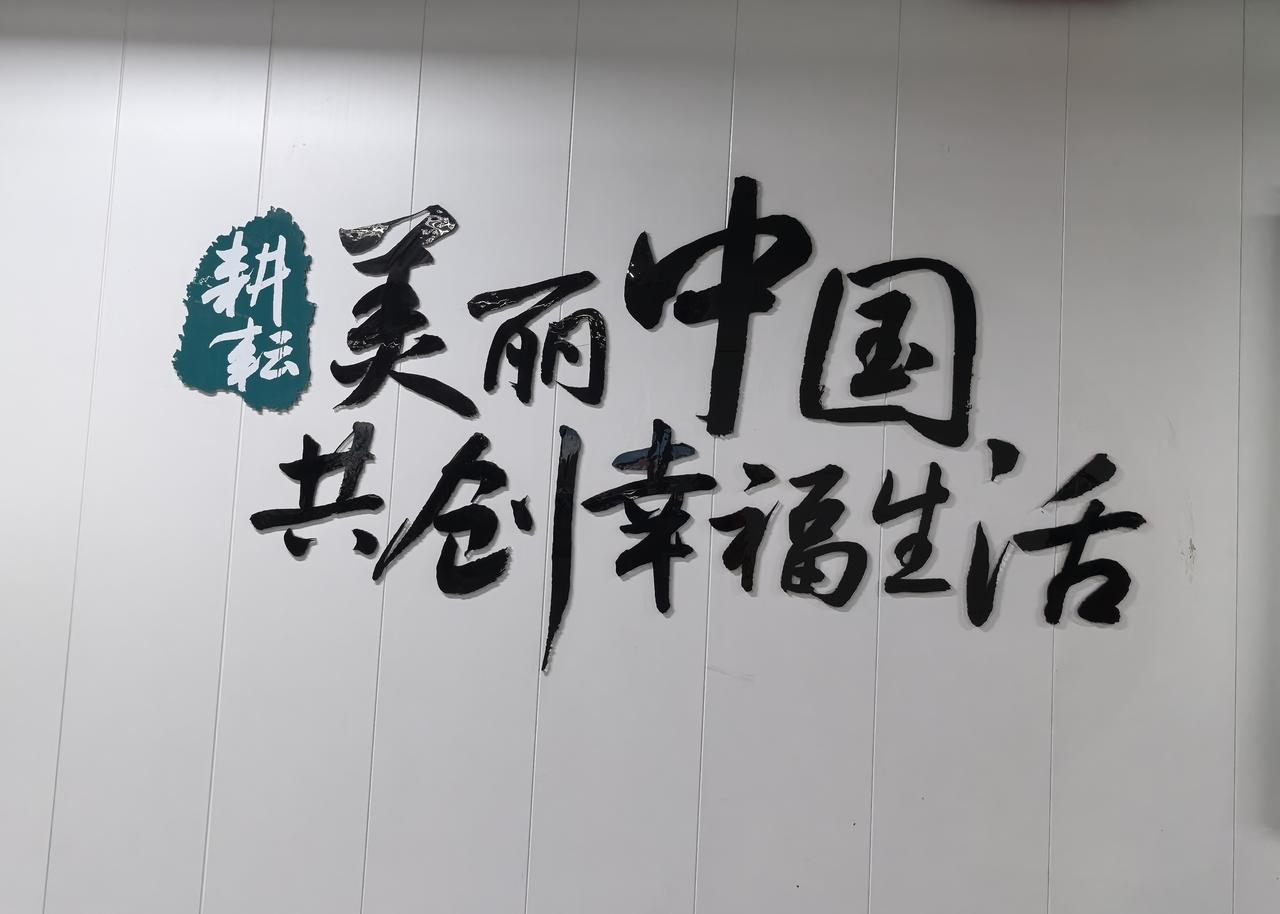 耕耘
美丽中国
共创幸福生活